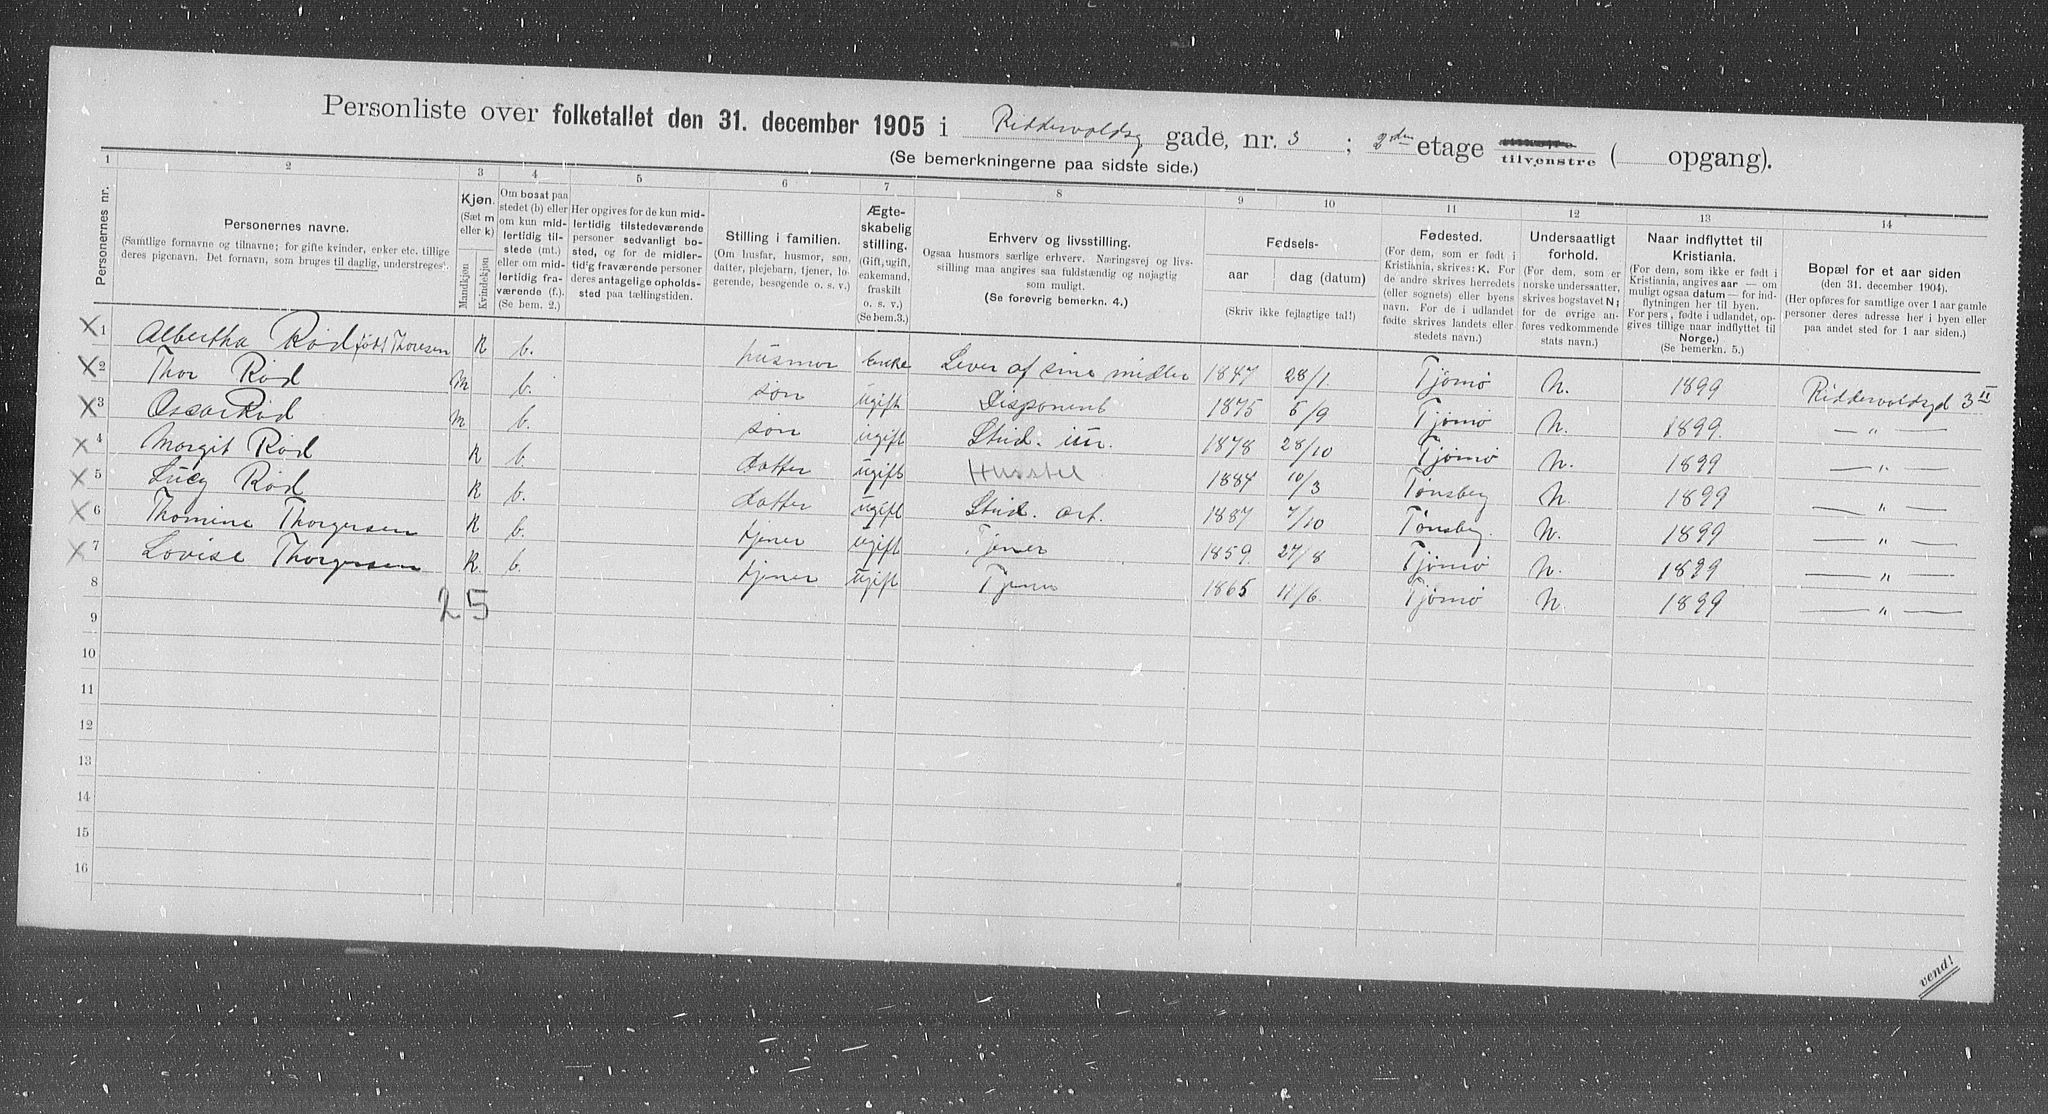 Personliste over folketallet den 31. december 1905 i Riddervoldsg gade, nr. 3 ; 3den etage tilvenstre ( opgang).
(Se bemerkningerne paa sidste side.)
1 2 3 4 5 6 7 8 9 10 11 12 13 14
Personernes nr.
Personernes navne.
(Samtlige fornavne og tilnavne; for gifte kvinder, enker etc. tillige
deres pigenavn. Det fornavn, som bruges til daglig, understreges.)
Kjøn.
(Sæt m
eller k)
Mandkjøn
Kvindekjøn
Om bosat paa
stedet (b) eller
om kun mid-
lertidig til-
stede (mt.)
eller om mid-
lertidig fra-
værende (f.).
(Se bem. 2.)
Her opgives for de kun mid-
lertidig tilstedeværende
personer sedvanligt bo-
sted, og for de midler-
tid'g fraværende personer
deres antagelige opholds-
sted paa tællingstiden.
Stilling i familien.
(Om husfar, husmor, søn,
datter, plejebarn, tjener, lo-
gerende, besøgende o. s. v.)
Ægte-
skabelig
stilling.
(Gift, ugift,
enkemand,
fraskilt
o. s. v.)
(Se bem.3.)
Erhverv og livsstilling.
Ogsaa husmors særlige erhverv. Næringsvej og livs-
stilling maa angives saa fuldstændig og nøjagtig
som muligt.
(Se forøvrig bemerkn. 4.)
Fødsels-
aar
dag (datum)
(Skriv ikke fejlagtige tal!)
Fødested.
(For dem, som er født i
Kristiania, skrives: K. For
de andre skrives herredets
(eller sognets) eller byens
navn. For de i udlandet
fødte skrives landets eller
stedets navn.)
Undersaatligt
forhold.
(For dem, som er
norske undersaatter,
skrives bogstavet N;
for de øvrige an-
føres vedkommende
stats navn.)
Naar indflyttet til
Kristiania.
(For dem, som ikke er født i
Kristiania, angives aar — om
muligt ogsaa datum — for ind-
flytningen her til byen.
For pers, fødte i udlandet, op-
gives tillige naar indflyttet til
Norge.)
(Se bemerkn. 5.)
Bopæl for et aar siden
(den 31. december 1904).
(Her opføres for samtlige over 1 aar gamle
personer deres adresse her i byen eller
paa andet sted for 1 aar siden.)
X 1 Albertha Rød født Thoresen K b. husmor enke Lever af sine midler 1847 28/1 Tjømø N. 1899 Riddervoldsgd 3 II
X 2 Thor Rød M b. søn ugift Disponent 1875 5/9 Tjømø N. 1899. — " —
X 3 Oscar Rød M b. søn ugift Stud. jur. 1878 28/10 Tjømø N. 1899 — " —
X 4 Margit Rød K b. datter ugift Husstel 1884 10/3 Tønsberg N. 1899 — " —
X 5 Lucy Rød K b. datter ugift Stud. art. 1887 7/10 Tønsberg. N. 1899 — " —
X 6 Thomine Thorgersen K b. tjener ugift Tjener 1859 27/8 Tjømø N. 1899 — " —
X 7 Lovise Thorgersen K. b. tjener ugift Tjener 1865 11/6. Tjømø N. 1899 — " —
8
2 5
9
10
11
12
13
14
15
16
vend!